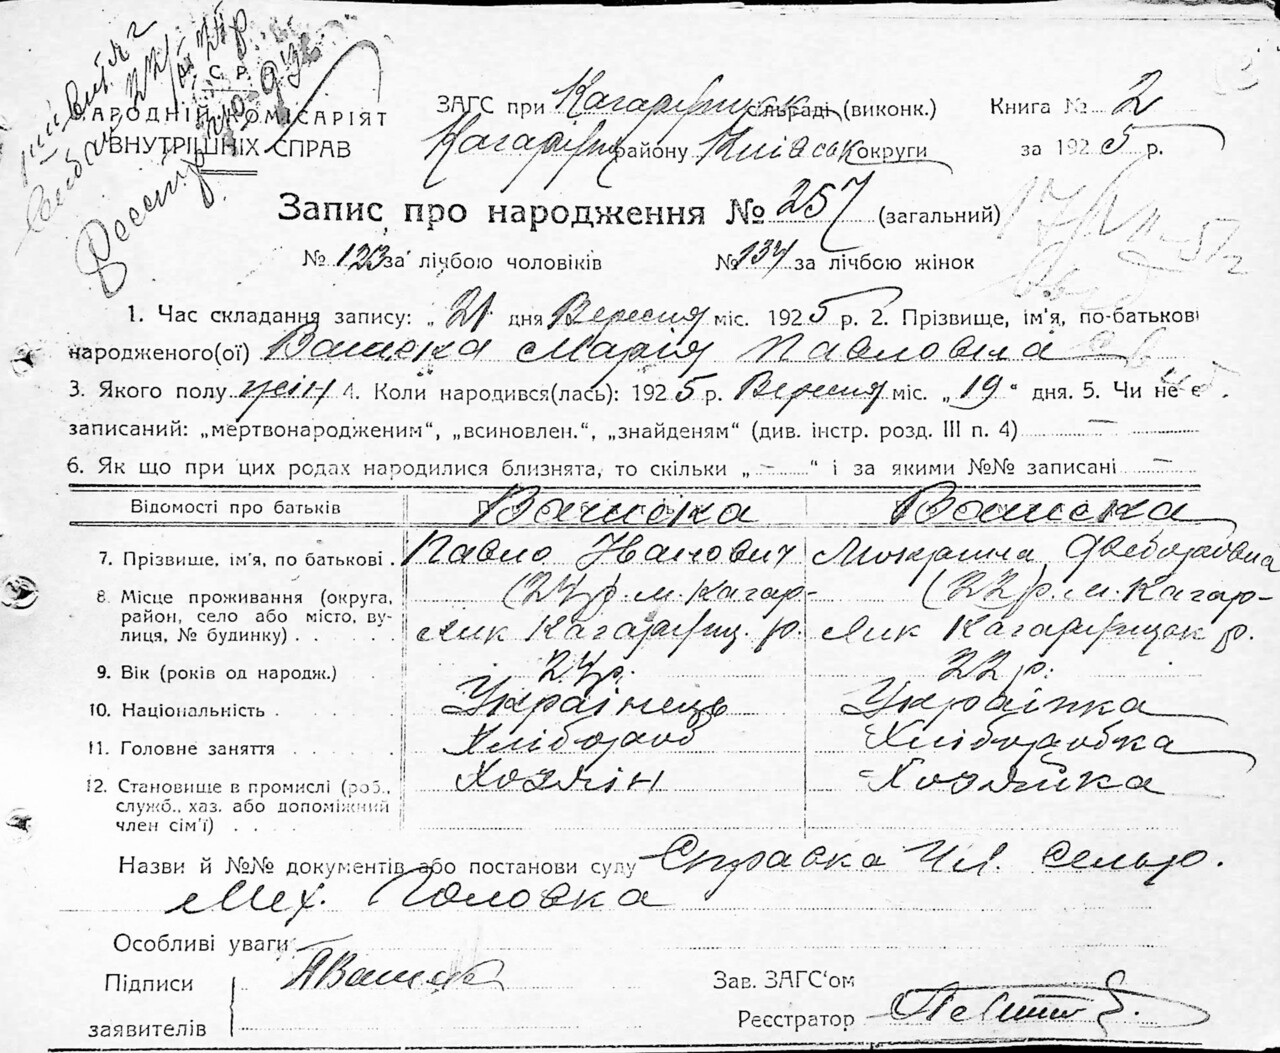 С. Р.
НАРОДНІЙ КОМІСАРІЯТ
ВНУТРІШНІХ СПРАВ
ЗАГС при Кагарлицьк сільраді (виконк.)
Кагарлиц району Київськ округи
Книга № 2
за 1925 р.
Запис про народження № 257 (загальний)
№ 123 за лічбою чоловіків № 134 за лічбою жінок
1. Час складання запису: „21 дня Вересня міс. 1925 р. 2. Прізвище, ім'я, по-батькові
народженого(ої) Мария Павловна
3. Якого полу жін 4. Коли народився(лась): 1925 р. Вересня міс. „19“ дня. 5. Чи не є
записаний: „мертвонародженим“, „всиновлен.“, „знайденям“ (див. інстр. розд. III п. 4) —
6. Як що при цих родах народилися близнята, то скільки „ — “ і за якими №№ записані —
Відомості про батьків
7. Прізвище, ім'я, по батькові . Павло Іванович
8. Місце проживання (округа, (27 р. м. Кагар- (22 р. м. Кагар-
район, село або місто, ву-
лиця, № будинку) . . . . лик Кагарлиц. р. лик Кагарлицьк р.
9. Вік (років од народж.) 27 р. 22 р.
10. Національність . Українець Українка
11. Головне заняття . . . . . Хлібороб Хліборобка
12. Становище в промислі (роб., Хозяїн Хозяйка
служб., хаз. або допоміжний
член сім'ї) . . . .
Назви й №№ документів або постанови суду Справка Чл. сельр.
Мих. Головка
Особливі уваги
Підписи
заявителів
Зав. ЗАГС'ом
Реєстратор